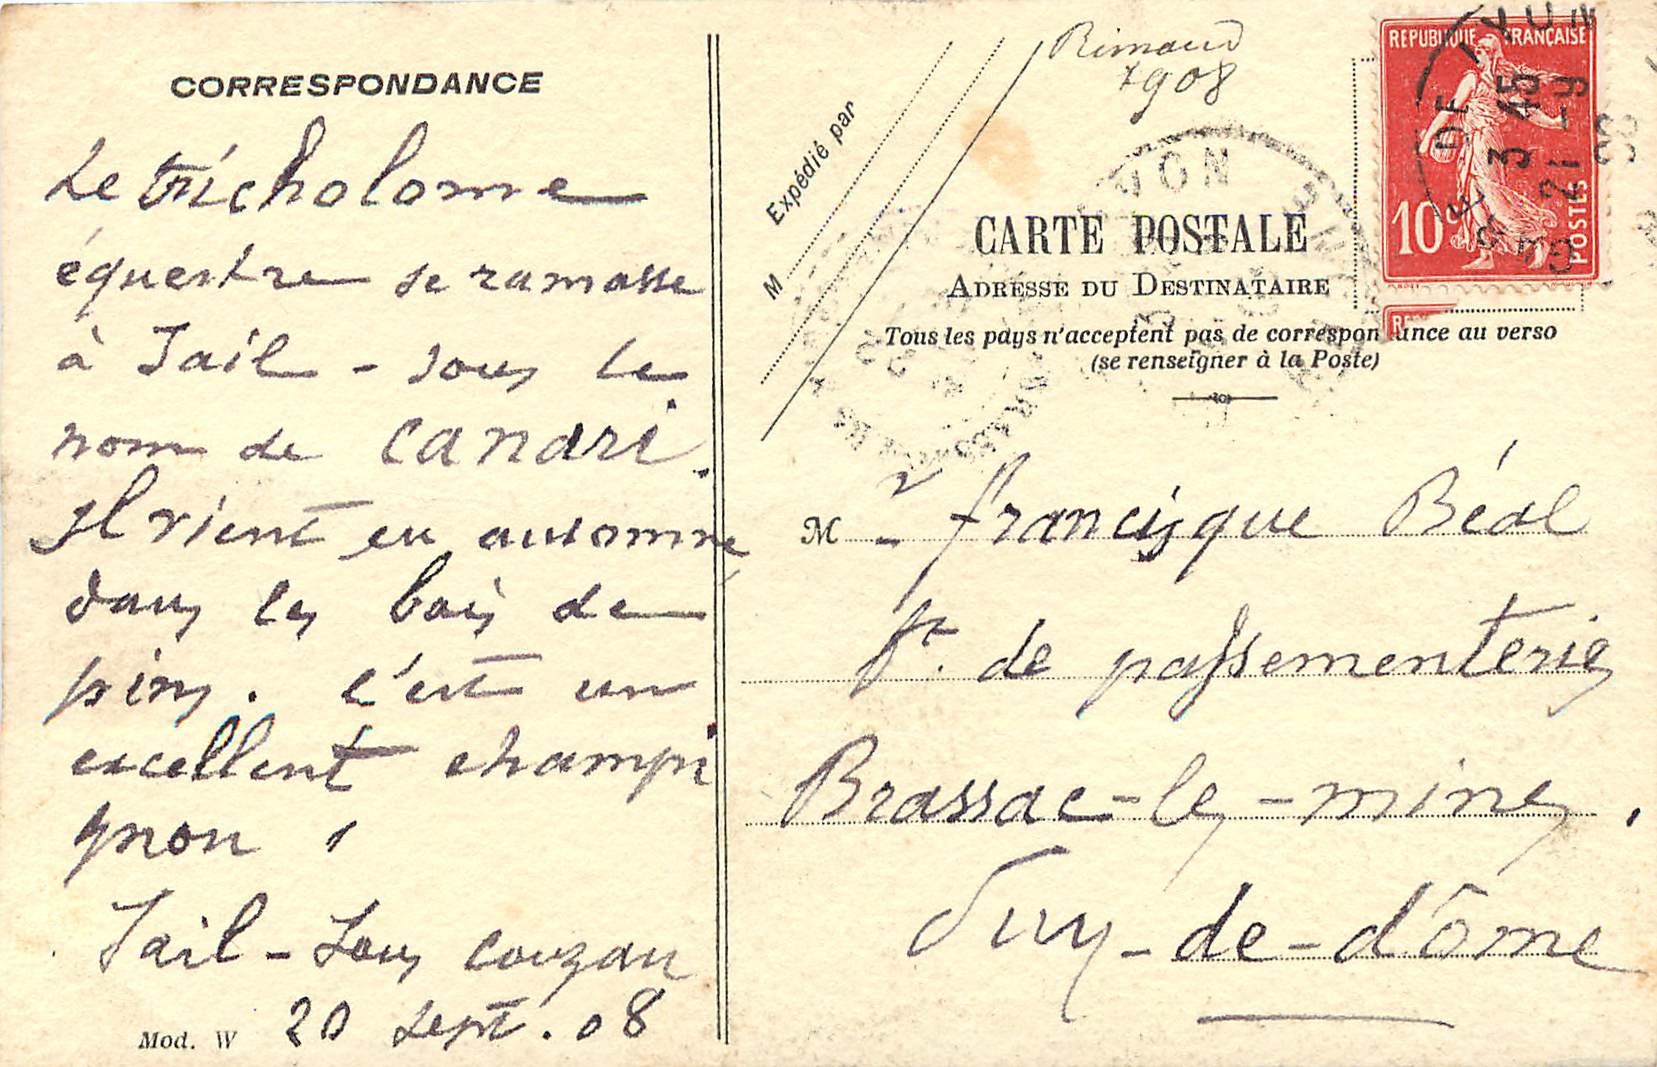 CORRESPONDANCE
Le tricholome
équestre se ramasse
à Sail - sous le
nom de canari.
Il vient en automne
dans les bois de
pins. C'est un
excellent champi
gnon.
Sail-Sous Couzan
20 Sept. 08
Mod. W
Expédié par
M
1908
CARTE POSTALE
ADRESSE DU DESTINATAIRE
Tous les pays n'acceptent pas de correspondance au verso
(se renseigner à la Poste)
REPUBLIQUE FRANÇAISE
10c
POSTES
3 45
21 -9
M r Francisque Béal
ft. de passementerie
Brassac-les-mines.
Puy-de-dôme